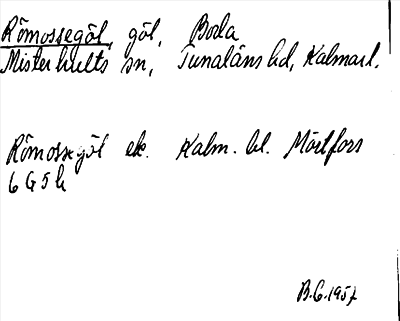 Römossegöl, göl, Boda
Misterhults sn, Tunaläns hd, Kalmar l.
Römossegöl ek. Kalm. bl. Mörtfors
6 G 5 h
B.G. 1957